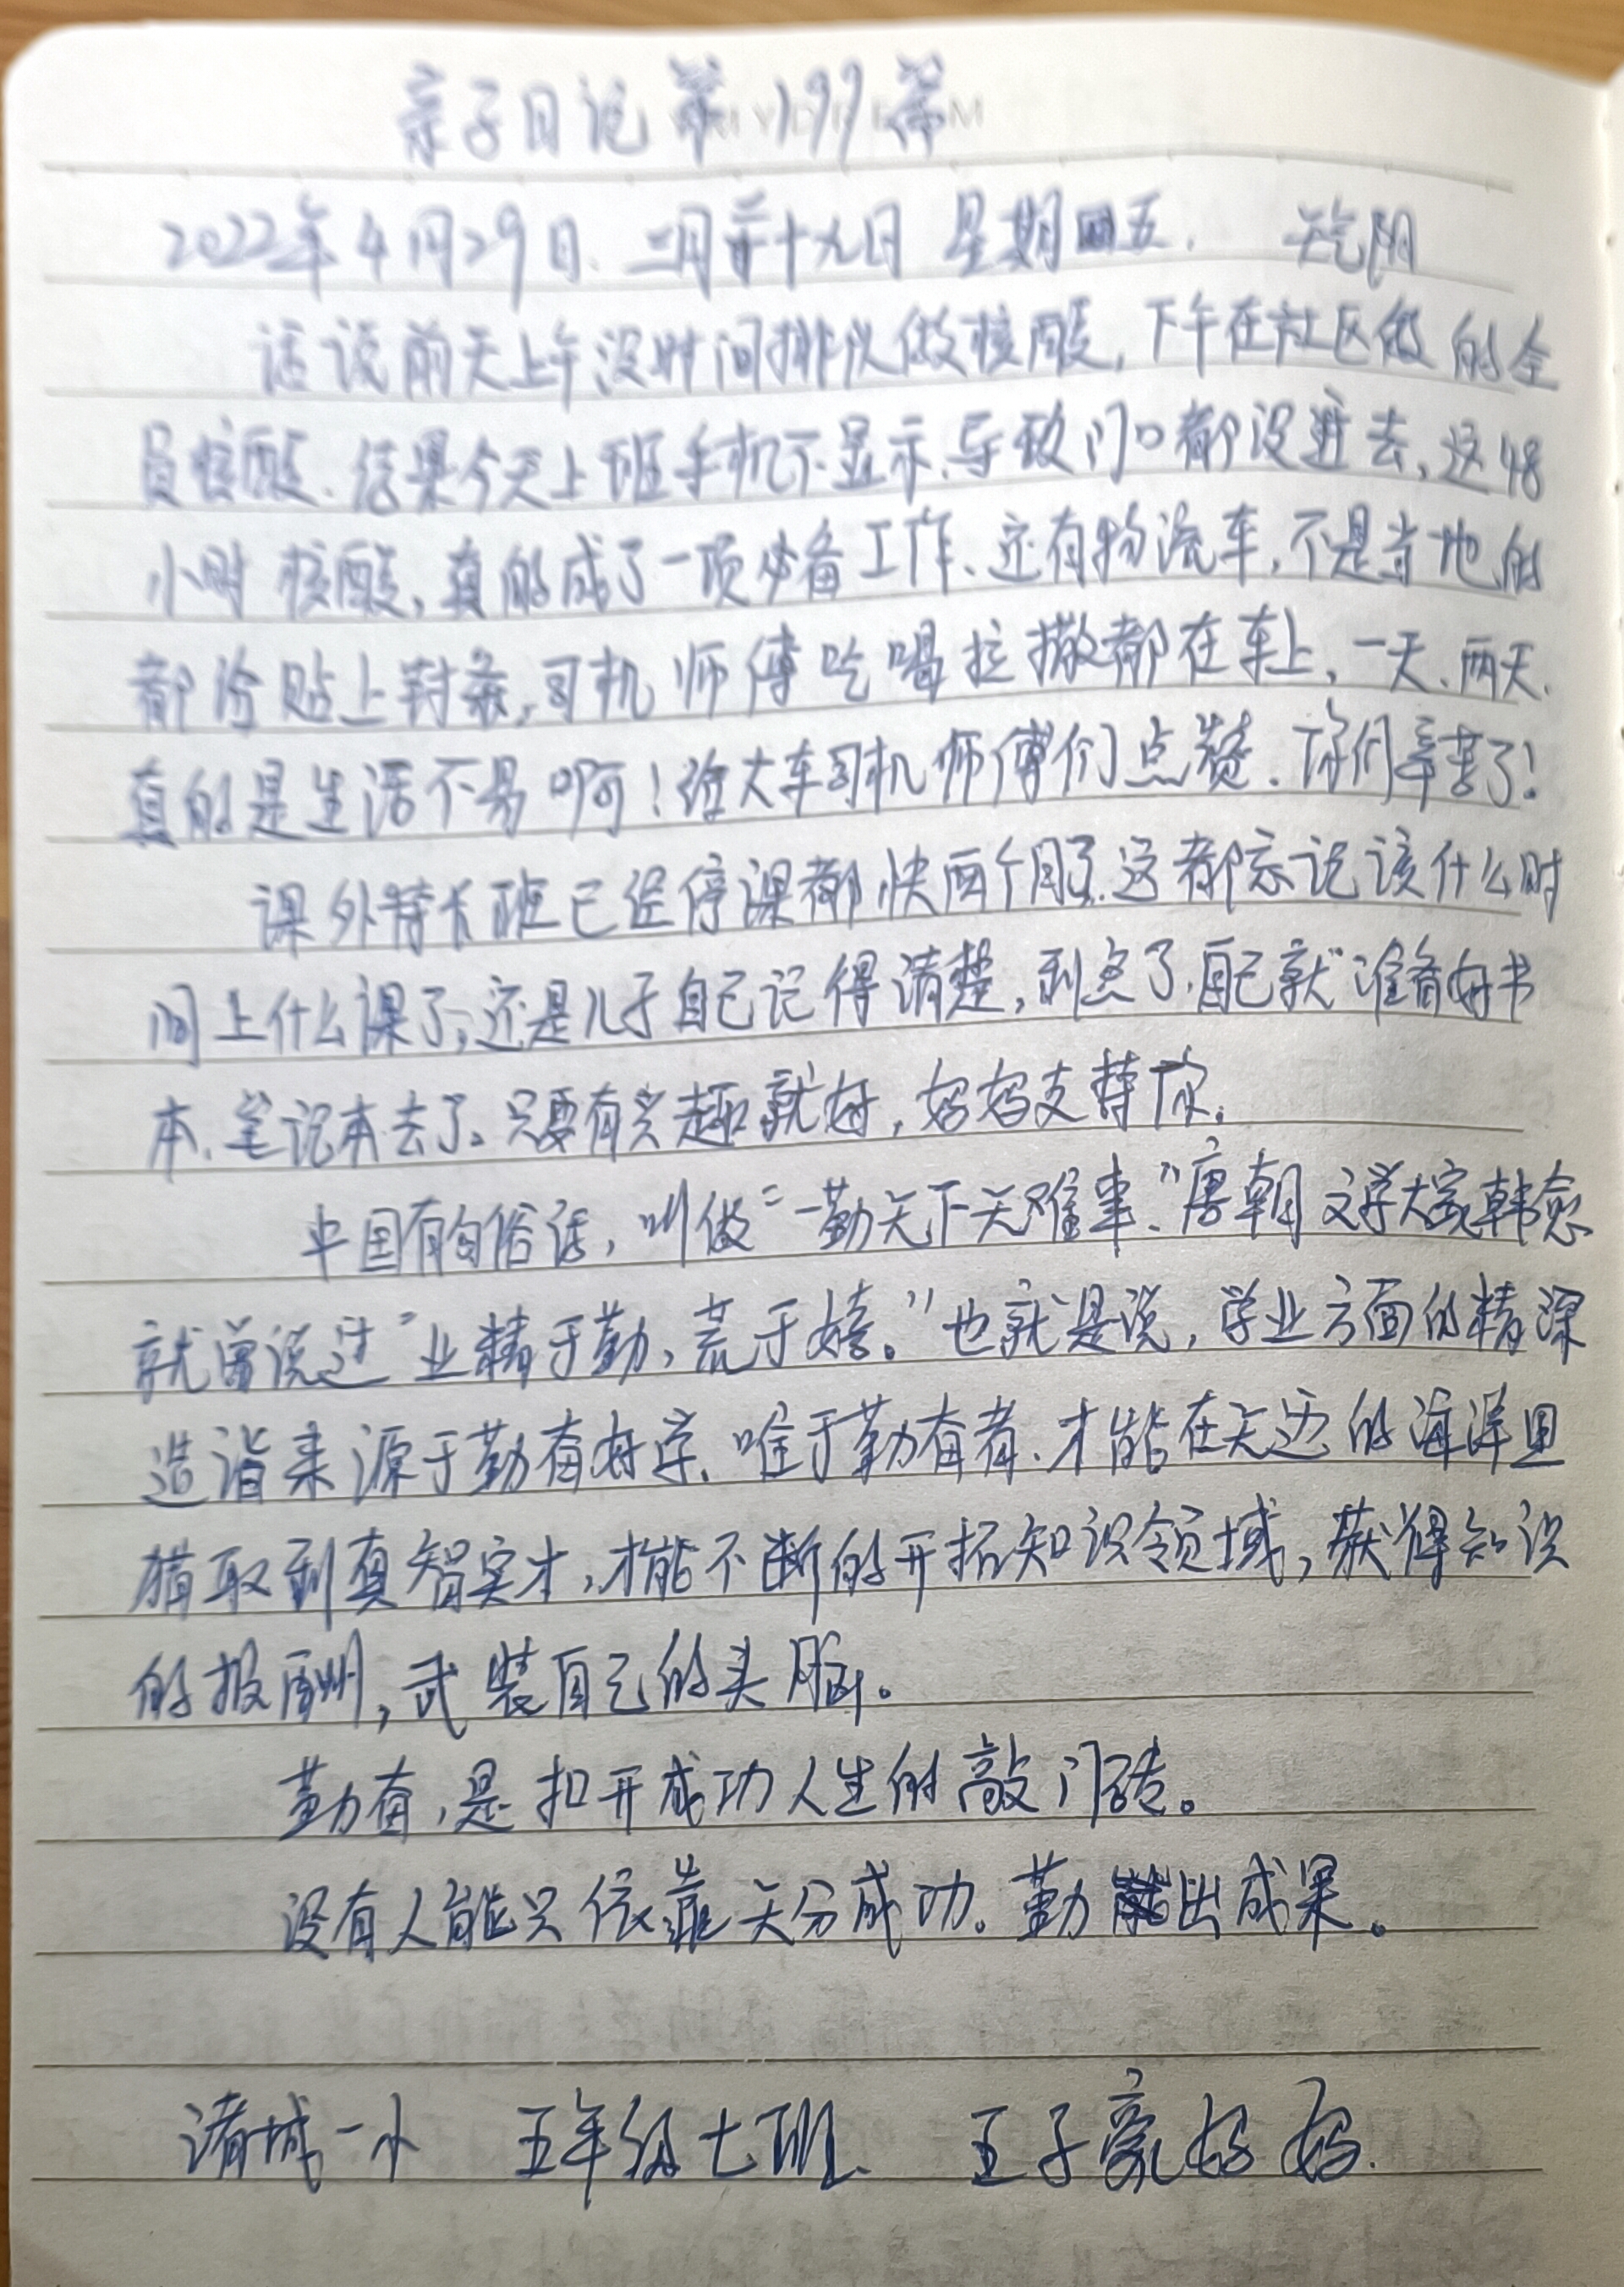 亲子日记 第197篇
2022年4月29日 二月二十九日 星期五. 天气阴
话说前天上午没时间排队做核酸,下午在社区做的全
员核酸.结果今天上班手机不显示.导致门口都没进去,这48
小时核酸,真的成了一项必备工作、还有物流车,不是当地的
都给贴上封条,司机师傅吃喝拉撒都在车上,一天、两天、
真的是生活不易啊!给大车司机师傅们点赞.你们辛苦了!
课外特长班已经停课都快两个月了.这都忘记该什么时
间上什么课了,还是儿子自己记得清楚,到点了.自己就准备好书
本、笔记本去了。只要有兴趣就好,妈妈支持你。
中国有句俗话,叫做“一勤天下无难事、”唐朝文学大家韩愈
就曾说过“业精于勤,荒于嬉。”也就是说,学业方面的精深
造诣来源于勤奋好学.唯于勤奋者.才能在无边的海洋里
猎取到真智实才,才能不断的开拓知识领域,获得知识
的报酬,武装自己的头脑。
勤奋,是扣开成功人生的敲门砖。
没有人能只依靠天分成功。勤出成果。
诸城一小 五年级七班. 王子豪妈妈.